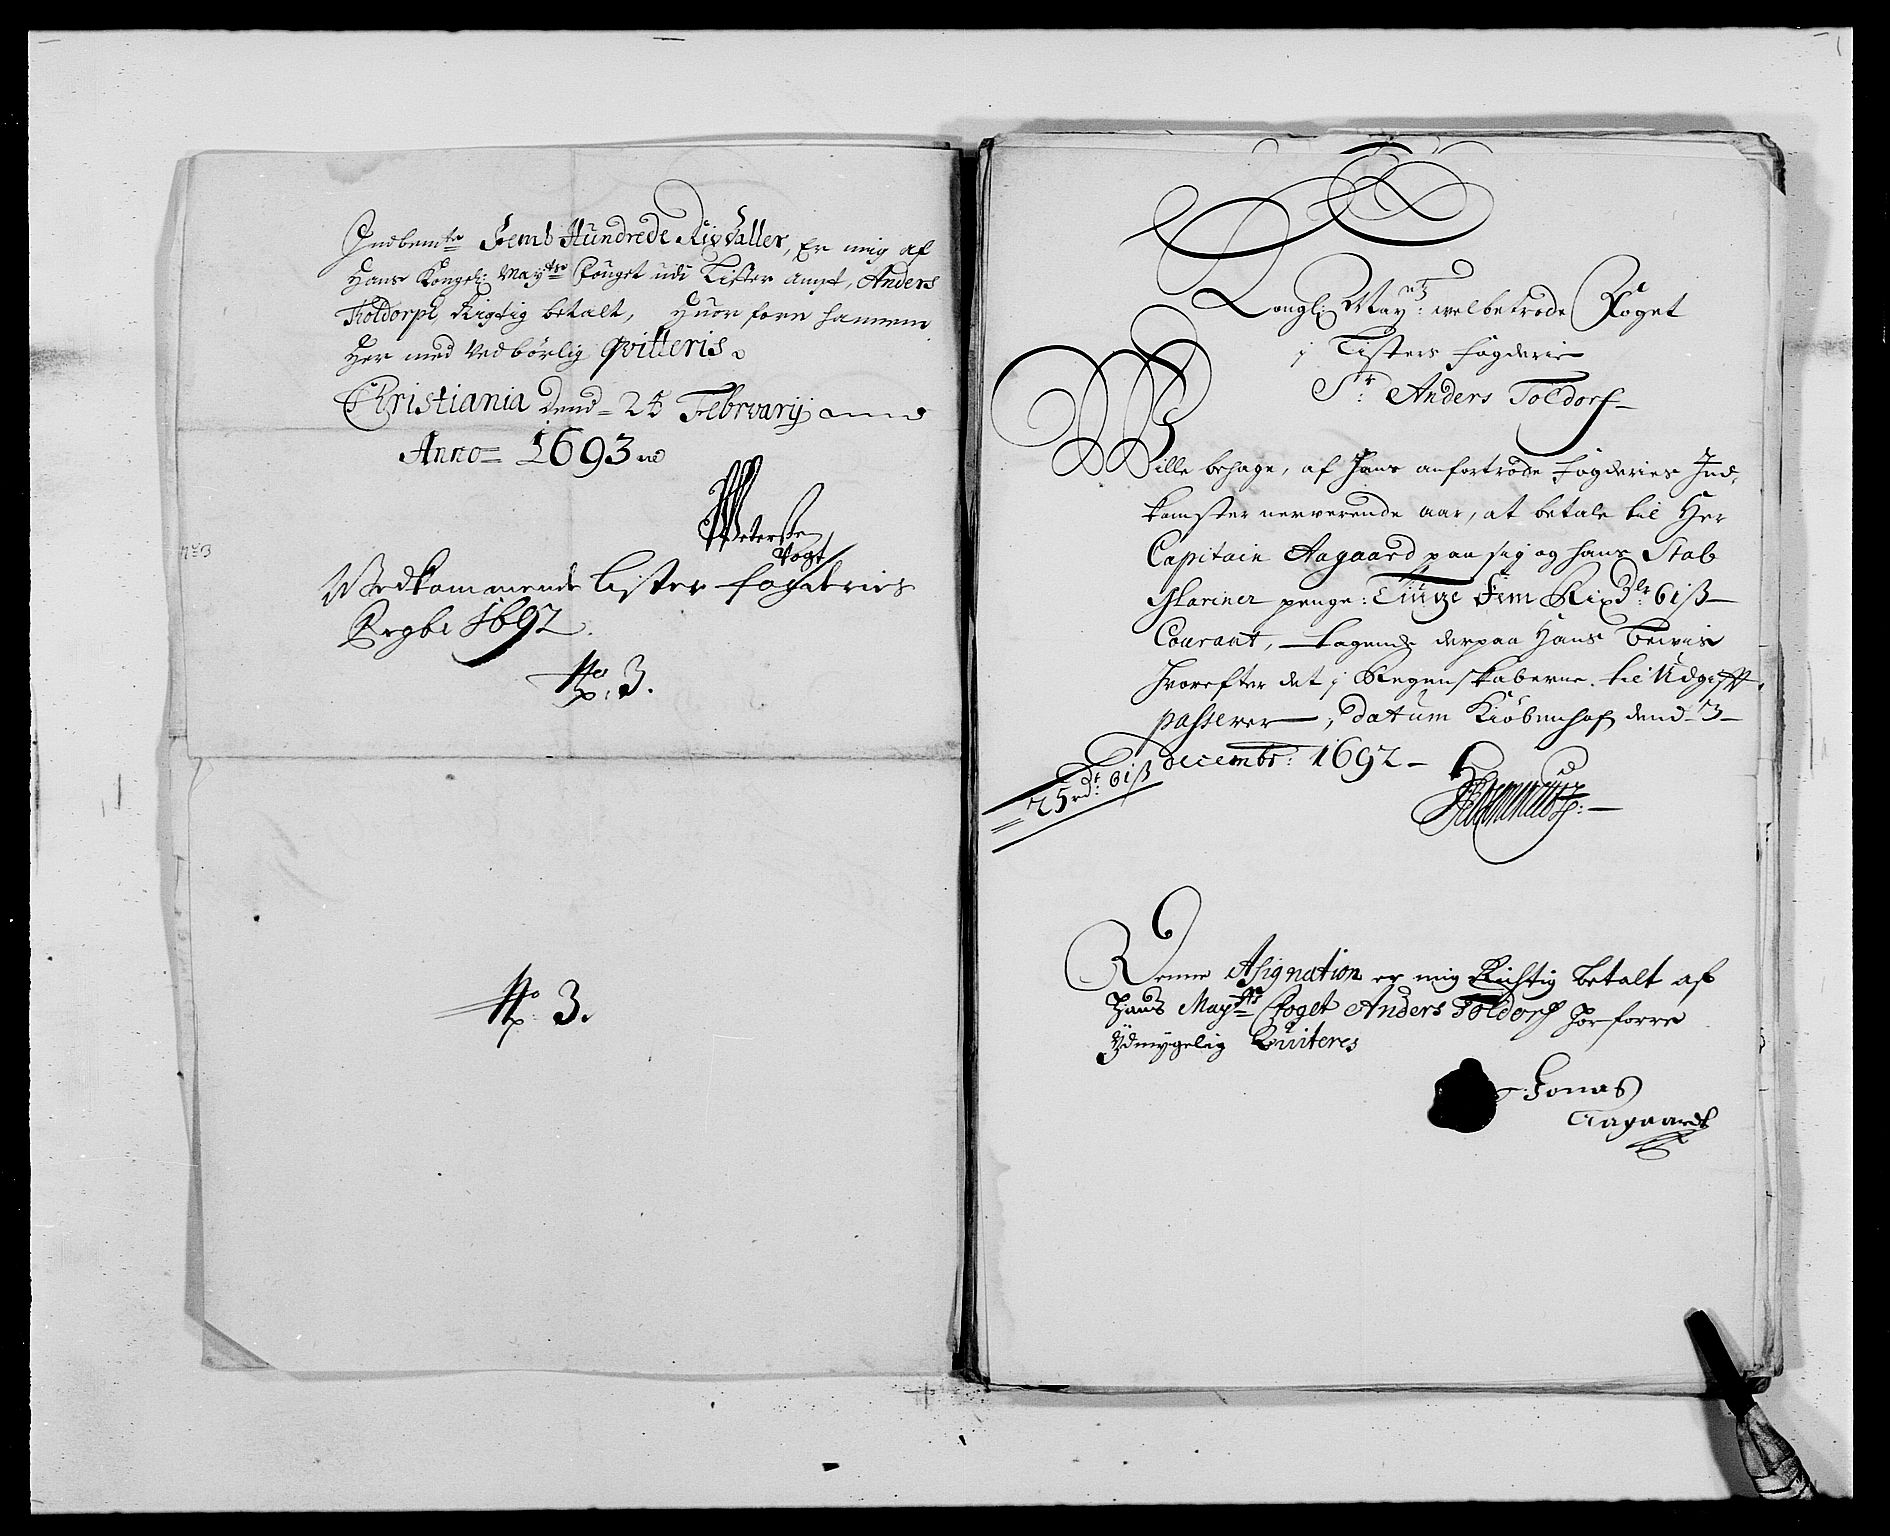 Indbemte Femb Hundrede Rixdaller, Er mig af
Hans Kongel: Maytz Fouget udi Lister Ampt, Anders
Toldorph Rigtig betalt, Huor forre hannem
Her med Vedbørlig qvitteris.
Christiania dend 25 Februarij
Anno 1693
Petersen
Vogt
Vedkommende Lister fogderies
Regbr 1692
No 3.
No 3.
Kongl: Mayts: welbetrode Foget
i Listers fogderie
Sr: Anders Toldorf
Wille behage, af Hans anfortrode Fogderies Ind,
komster nerverende aar, at betale til Her
Capitain Aagaard paa sig og hans Stab
penge: Tiuge Fem Rixdlr 61ß
Courant, tagende derpaa Hans bevis
hvorefter det i Regenskaberne til Udgifft
passerer, datum Kiøbenhafn dend 3
decembr: 1692
25 rdr: 61ß
Denne Asignation er mig Richtig betalt af
Hans Maytz Foget Anders Toldorf hvorforre
Ydmygelig Quiteres
Jonas
Aagaard